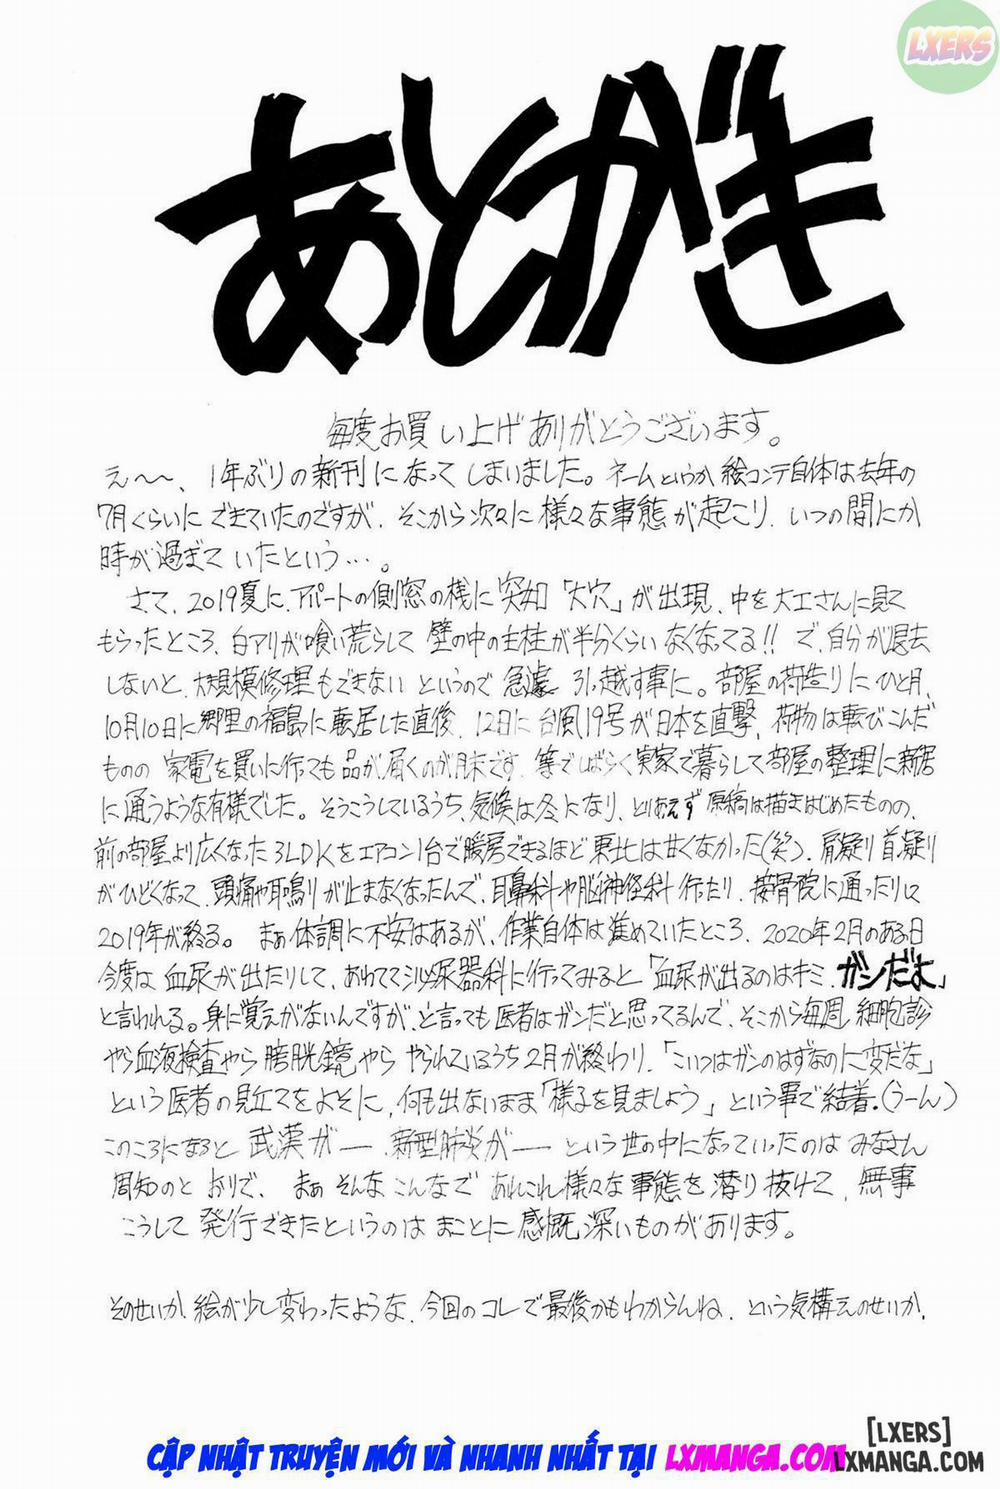 LXERS
あとがき
毎度お買い上げありがとうございます。
え〜〜、1年ぶりの新刊になってしまいました。ネームというか絵コンテ自体は去年の
7月くらいにできていたのですが、そこから次々に様々な事態が起こり、いつの間にか
時が過ぎていたという…。
さて、2019夏に、アパートの側窓の桟に突如「大穴」が出現、中を大工さんに見て
もらったところ、白アリが喰い荒らして壁の中の主柱が半分くらいなくなってる!!で、自分が退去
しないと、大規模修理もできないというので急遽引っ越す事に。部屋の荷造りにひと月、
10月10日に郷里の福島に転居した直後、12日に台風19号が日本を直撃、荷物は転びこんだ
ものの家電を買いに行っても品が届くのが月末です、等でしばらく実家で暮らして部屋の整理に新居
に通うような有様でした。そうこうしているうち、気候は冬になり、とりあえず原稿は描きはじめたものの、
前の部屋より広くなった3LDKをエアコン1台で暖房できるほど東北は甘くなかった(笑)、肩凝り首凝り
がひどくなって、頭痛や耳鳴りが止まなくなったんで、耳鼻科や脳神経科行ったり、接骨院に通ったりして
2019年が終る。まぁ体調に不安はあるが、作業自体は進めていたところ、2020年2月のある日
今度は血尿が出たりして、あわてて泌尿器科に行ってみると「血尿が出るのはキミ、ガンだよ」
と言われる。身に覚えがないんですが、と言っても医者はガンだと思ってるんで、そこから毎週細胞診
やら血液検査やら膀胱鏡やらやられているうち2月が終わり、「こいつはガンのはずなのに変だな」
という医者の見立てをよそに、何も出ないまま「様子を見ましょう」という事で結着。(うーん)
このころになると武漢が──新型肺炎が──という世の中になっていったのはみなさん
周知のとおりで、まぁそんなこんなであれこれ様々な事態を潜り抜けて、無事
こうして発行できたというのはまことに感慨深いものがあります。
そのせいか、絵が少し変わったような、今回のコレで最後かもわからんね、という気構えのせいか、
[LXERS]
CẬP NHẬT TRUYỆN MỚI VÀ NHANH NHẤT TẠI LXMANGA.COM
LXMANGA.COM